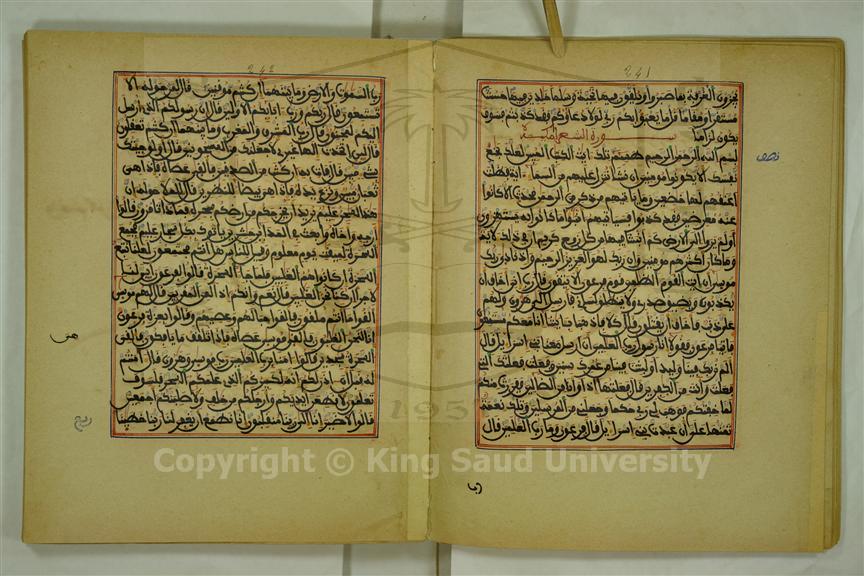 241
يجزون الغرفة بما صبروا ويلقون فيها تحية وسلما خلدين فيها حسنت
مستقرا ومقاما قل ما يعبؤا بكم ربي لولا دعاؤكم فقد كذبتم فسوف
يكون لزاما سورة الشعراء مكية
نصف
بسم الله الرحمن الرحيم طسم تلك ايت الكتب المبين لعلك بخع
نفسك الا يكونوا مومنين ان نشا ننزل عليهم من السماء اية فظلت
اعنقهم لها خضعين وما ياتيهم من ذكر من الرحمن محدث الا كانوا
عنه معرضين فقد كذبوا فسياتيهم انبؤا ما كانوا به يستهزءون
اولم يروا الى الارض كم انبتنا فيها من كل زوج كريم ان في ذلك لاية
وما كان اكثرهم مومنين وان ربك لهو العزيز الرحيم واذ نادى ربك
موسى ان ايت القوم الظلمين قوم فرعون الا يتقون قال رب اني اخاف ان
يكذبون ويضيق صدري ولا ينطلق لساني فارسل الى هرون ولهم
علي ذنب فاخاف ان يقتلون قال كلا فاذهبا بايتنا انا معكم مستمعون
فاتيا فرعون فقولا انا رسول رب العلمين ان ارسل معنا بني اسراءيل قال
الم نربك فينا وليدا ولبثت فينا من عمرك سنين وفعلت فعلتك التي
فعلت وانت من الكفرين قال فعلتها اذا وانا من الضالين ففررت منكم
لما خفتكم فوهب لي ربي حكما وجعلني من المرسلين وتلك نعمة
تمنها علي ان عبدت بني اسراءيل قال فرعون وما رب العلمين قال
242
رب السموت والارض وما بينهما ان كنتم موقنين قال لمن حوله الا
تستمعون قال ربكم ورب ابائكم الاولين قال ان رسولكم الذي ارسل
اليكم لمجنون قال رب المشرق والمغرب وما بينهما ان كنتم تعقلون
قال لئن اتخذت الها غيري لاجعلنك من المسجونين قال اولو جئتك
بشيء مبين قال فات به ان كنت من الصدقين فالقى عصاه فاذا هي
ثعبان مبين ونزع يده فاذا هي بيضاء للنظرين قال للملإ حوله ان
هذا لسحر عليم يريد ان يخرجكم من ارضكم بسحره فماذا تامرون قالوا
ارجه واخاه وابعث في المدائن حشرين ياتوك بكل سحار عليم فجمع
السحرة لميقت يوم معلوم وقيل للناس هل انتم مجتمعون لعلنا نتبع
السحرة ان كانوا هم الغلبين فلما جاء السحرة قالوا لفرعون ائن لنا
لاجرا ان كنا نحن الغلبين قال نعم وانكم اذا لمن المقربين قال لهم موسى
القوا ما انتم ملقون فالقوا حبالهم وعصيهم وقالوا بعزة فرعون
انا لنحن الغلبون فالقى موسى عصاه فاذا هي تلقف ما يافكون فالقي
السحرة سجدين قالوا امنا برب العلمين رب موسى وهرون قال امنتم
له قبل ان اذن لكم انه لكبيركم الذي علمكم السحر فلسوف
تعلمون لاقطعن ايديكم وارجلكم من خلف ولاصلبنكم اجمعين
قالوا لا ضير انا الى ربنا منقلبون انا نطمع ان يغفر لنا ربنا خطينا
1957
Copyright © King Saud University